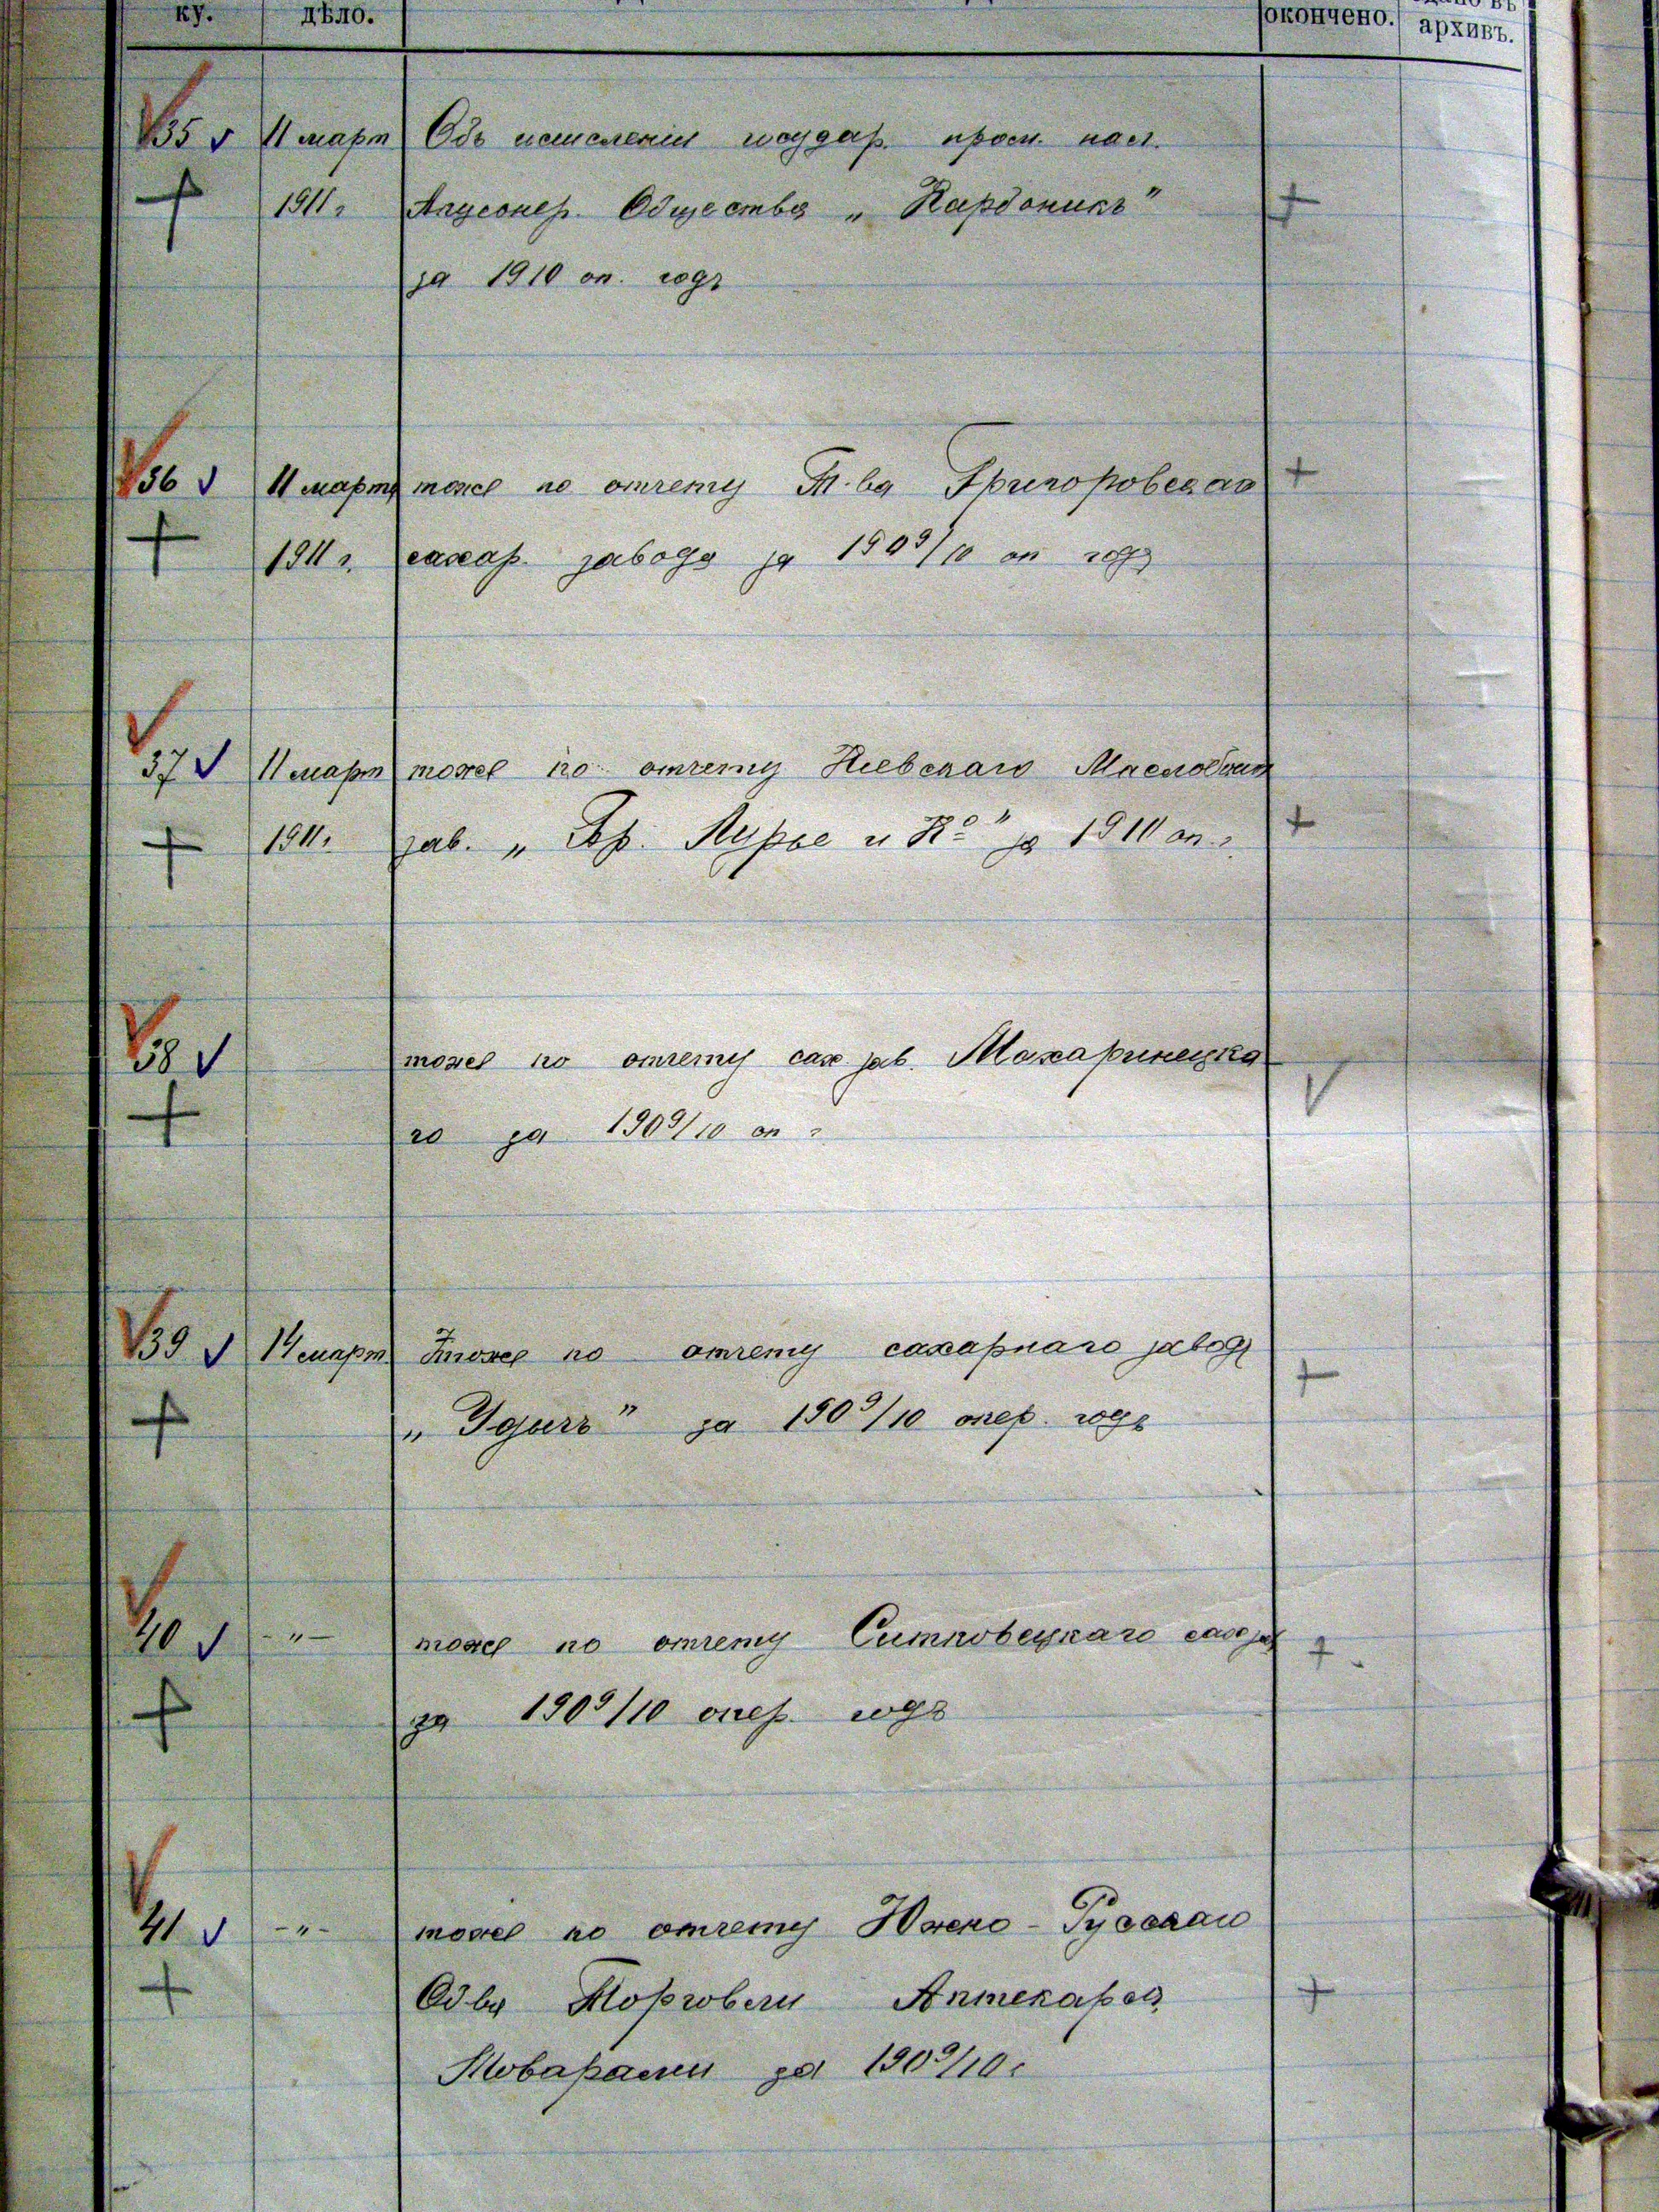 ку. дѣло. окончено. архивъ.
35 11 март Объ исчисленіи государ. пром. нал.
1911 г. Акціонер. Общества „Карбоникъ"
за 1910 оп. годъ
36 11 марта тоже по отчету Т-ва Григоровскаго
1911 г. сахар. завода за 1909/10 оп годъ
37 11 март тоже по отчету Кіевскаго Маслобойн
1911 г. зав. „Бр. Лурье и Ко" за 1910 оп. г.
38 тоже по отчету сах зав. Махаринецка
го за 1909/10 оп г.
39 14 март. тоже по отчету сахарнаго завода
„Удичъ" за 1909/10 опер. годъ
40 -"- тоже по отчету Ситковецкаго сах зав
за 1909/10 опер. годъ
41 -"- тоже по отчету Южно-Русскаго
Об-ва Торговли Аптекарск.
Товарами за 1909/10 г